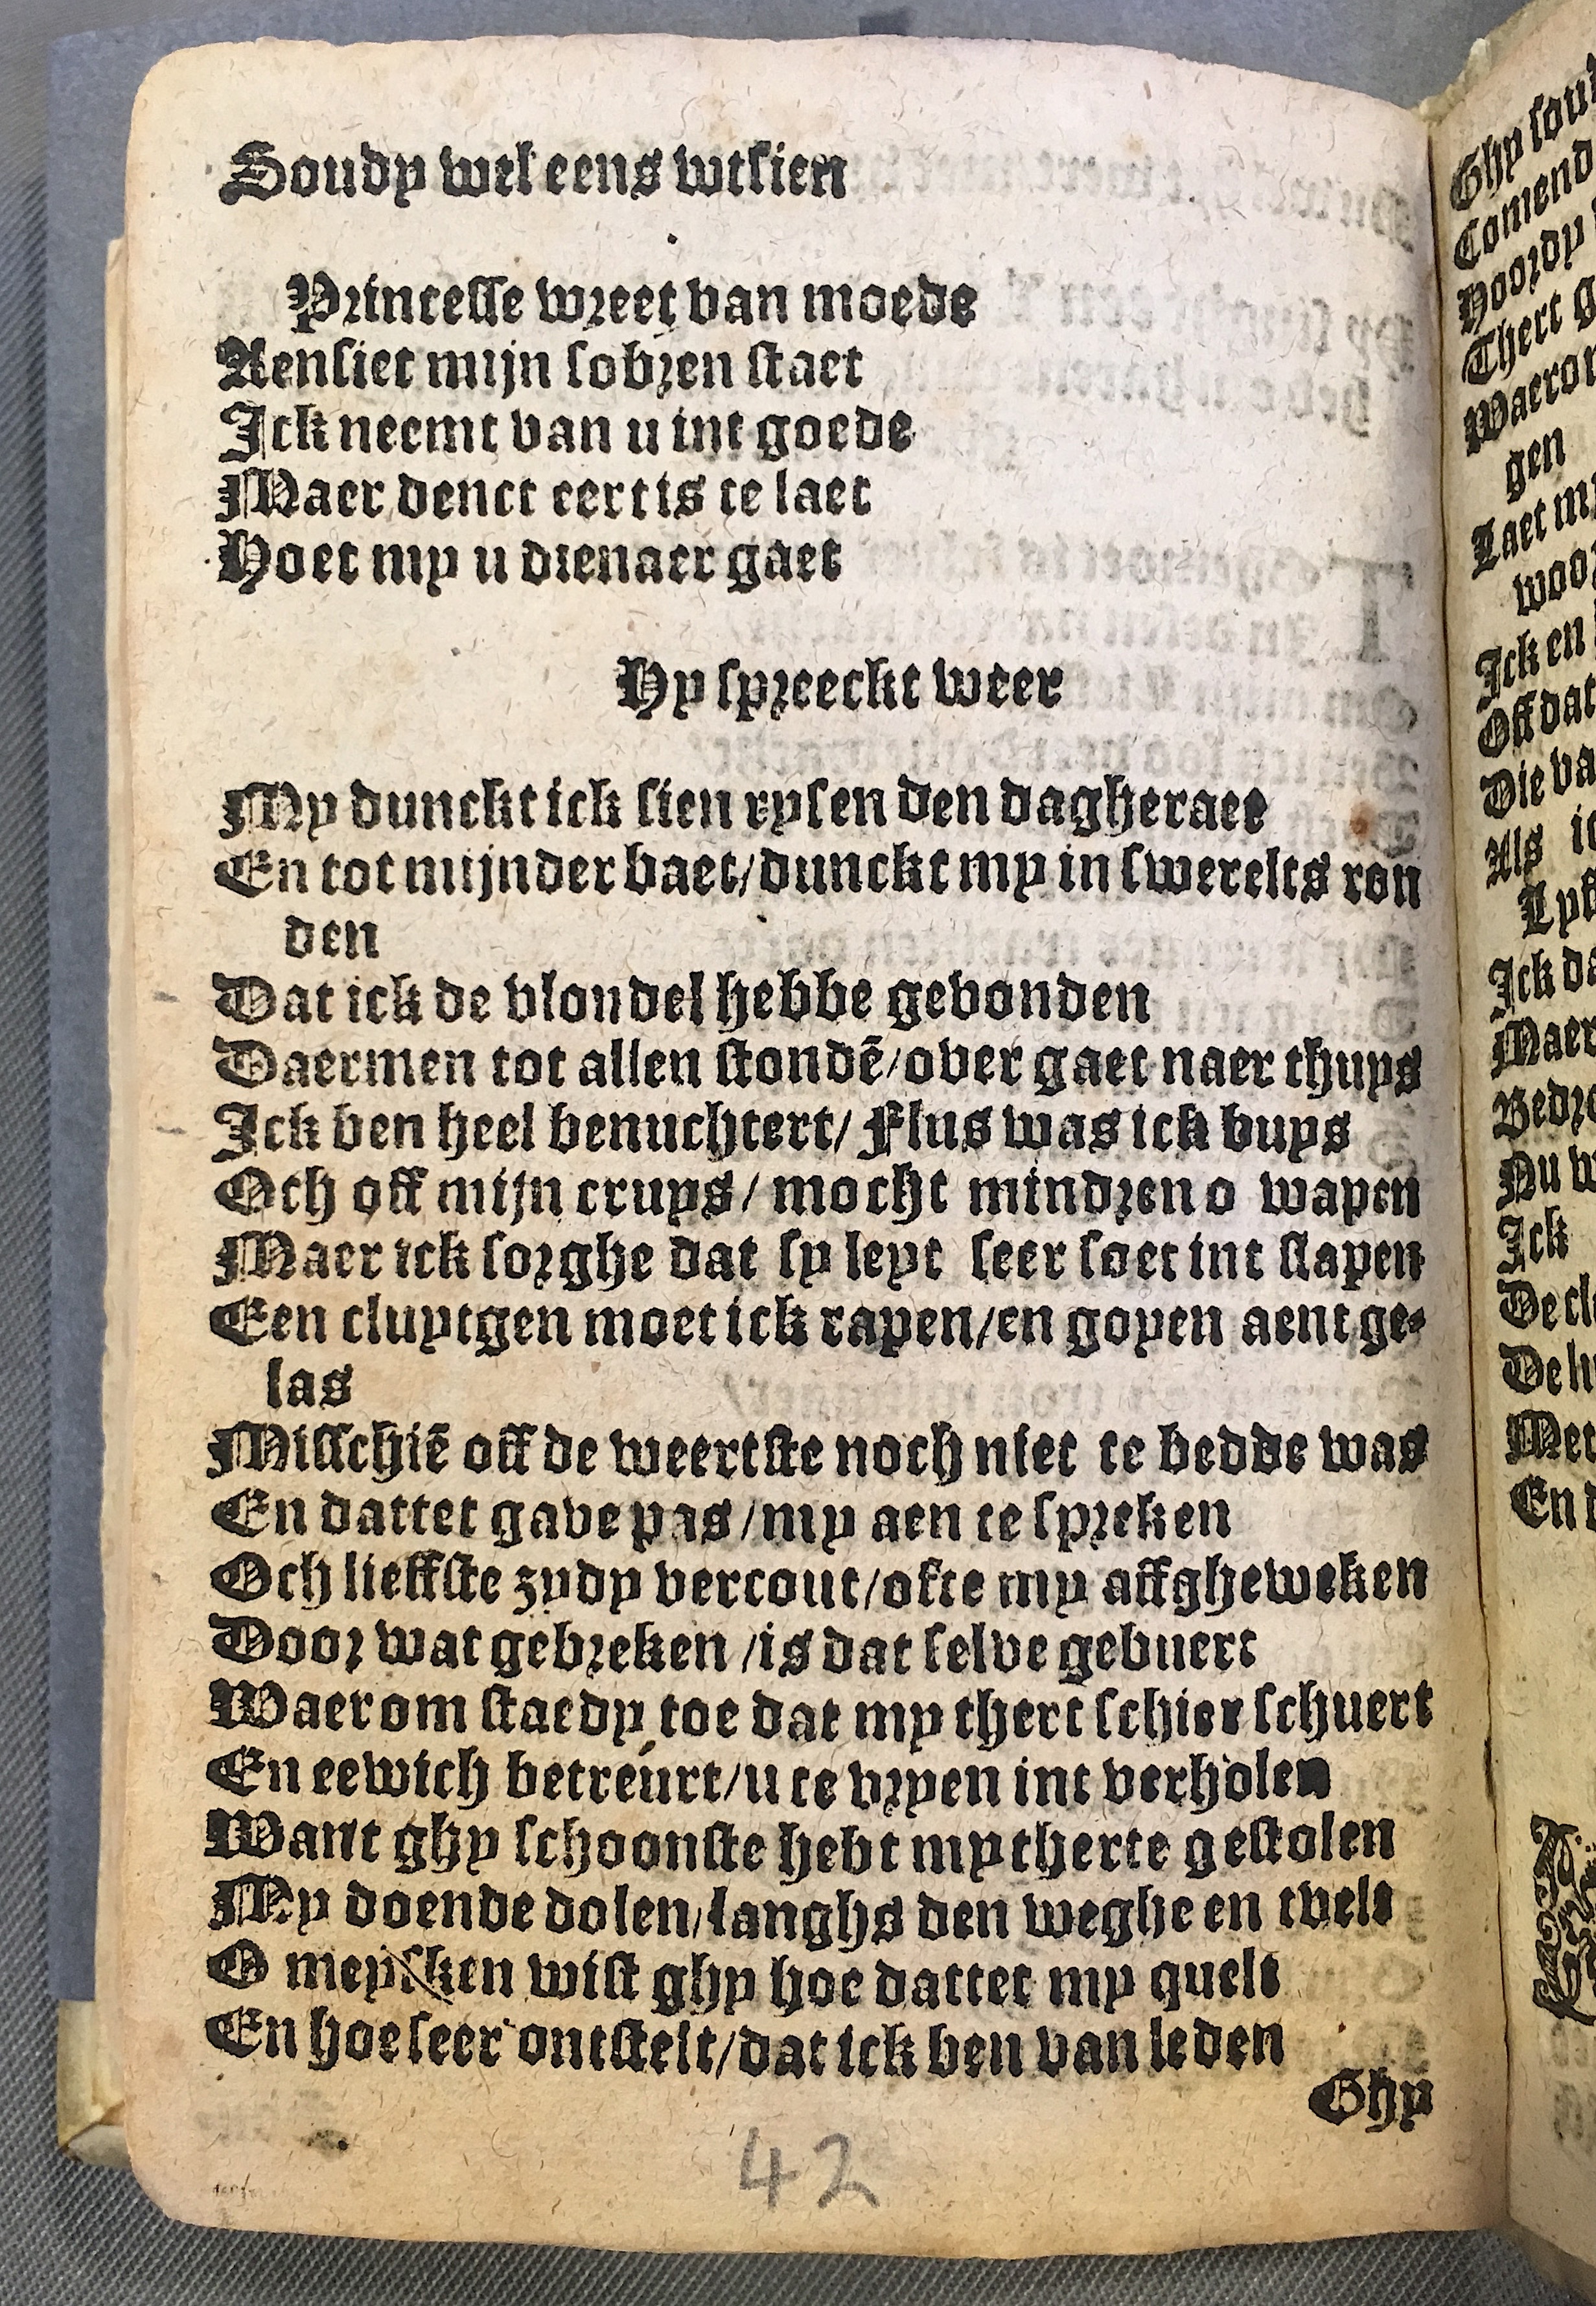 Soudy wel eens wtsien
Princesse wreet van moede
Aensiet mijn sobren staet
Ick neemt van u int goede
Maer denct eert is te laet
Hoet my u dienaer gaet
Hy spreeckt weer
My dunckt ick sien rysen den dagheraet
En tot mijnder baet/dunckt my in swerelts ron
den
Dat ick de vlondel hebbe gevonden
Daermen tot allen stondē/over gaet naer thuys
Ick ben heel benuchtert/ Flus was ick buys
Och off mijn cruys/ mocht mindren o wapen
Maer ick sorghe dat sy leyt seer soet int slapen
Een cluytgen moet ick rapen/en goyen aent ge-
las
Misschiē off de weertste noch niet te bedde was
En dattet gave pas/my aen te spreken
Och lieffste zydy vercout/ofte my affgheweken
Door wat gebreken/is dat selve gebuert
Waerom staedy toe dat my thert schier schuert
En eewich betreurt/u te vryen int verholen
Want ghy schoonste hebt my therte gestolen
My doende dolen/langhs den weghe en tvelt
O meysken wist ghy hoe dattet my quelt
En hoe seer ontstelt/dat ick ben van leden
Ghy
42
Ghy
Comend
Hoordy
Thert
gen
Laet
Ick en
Off dat
Als
Ick
Maer
Nu
Ick
Met
En